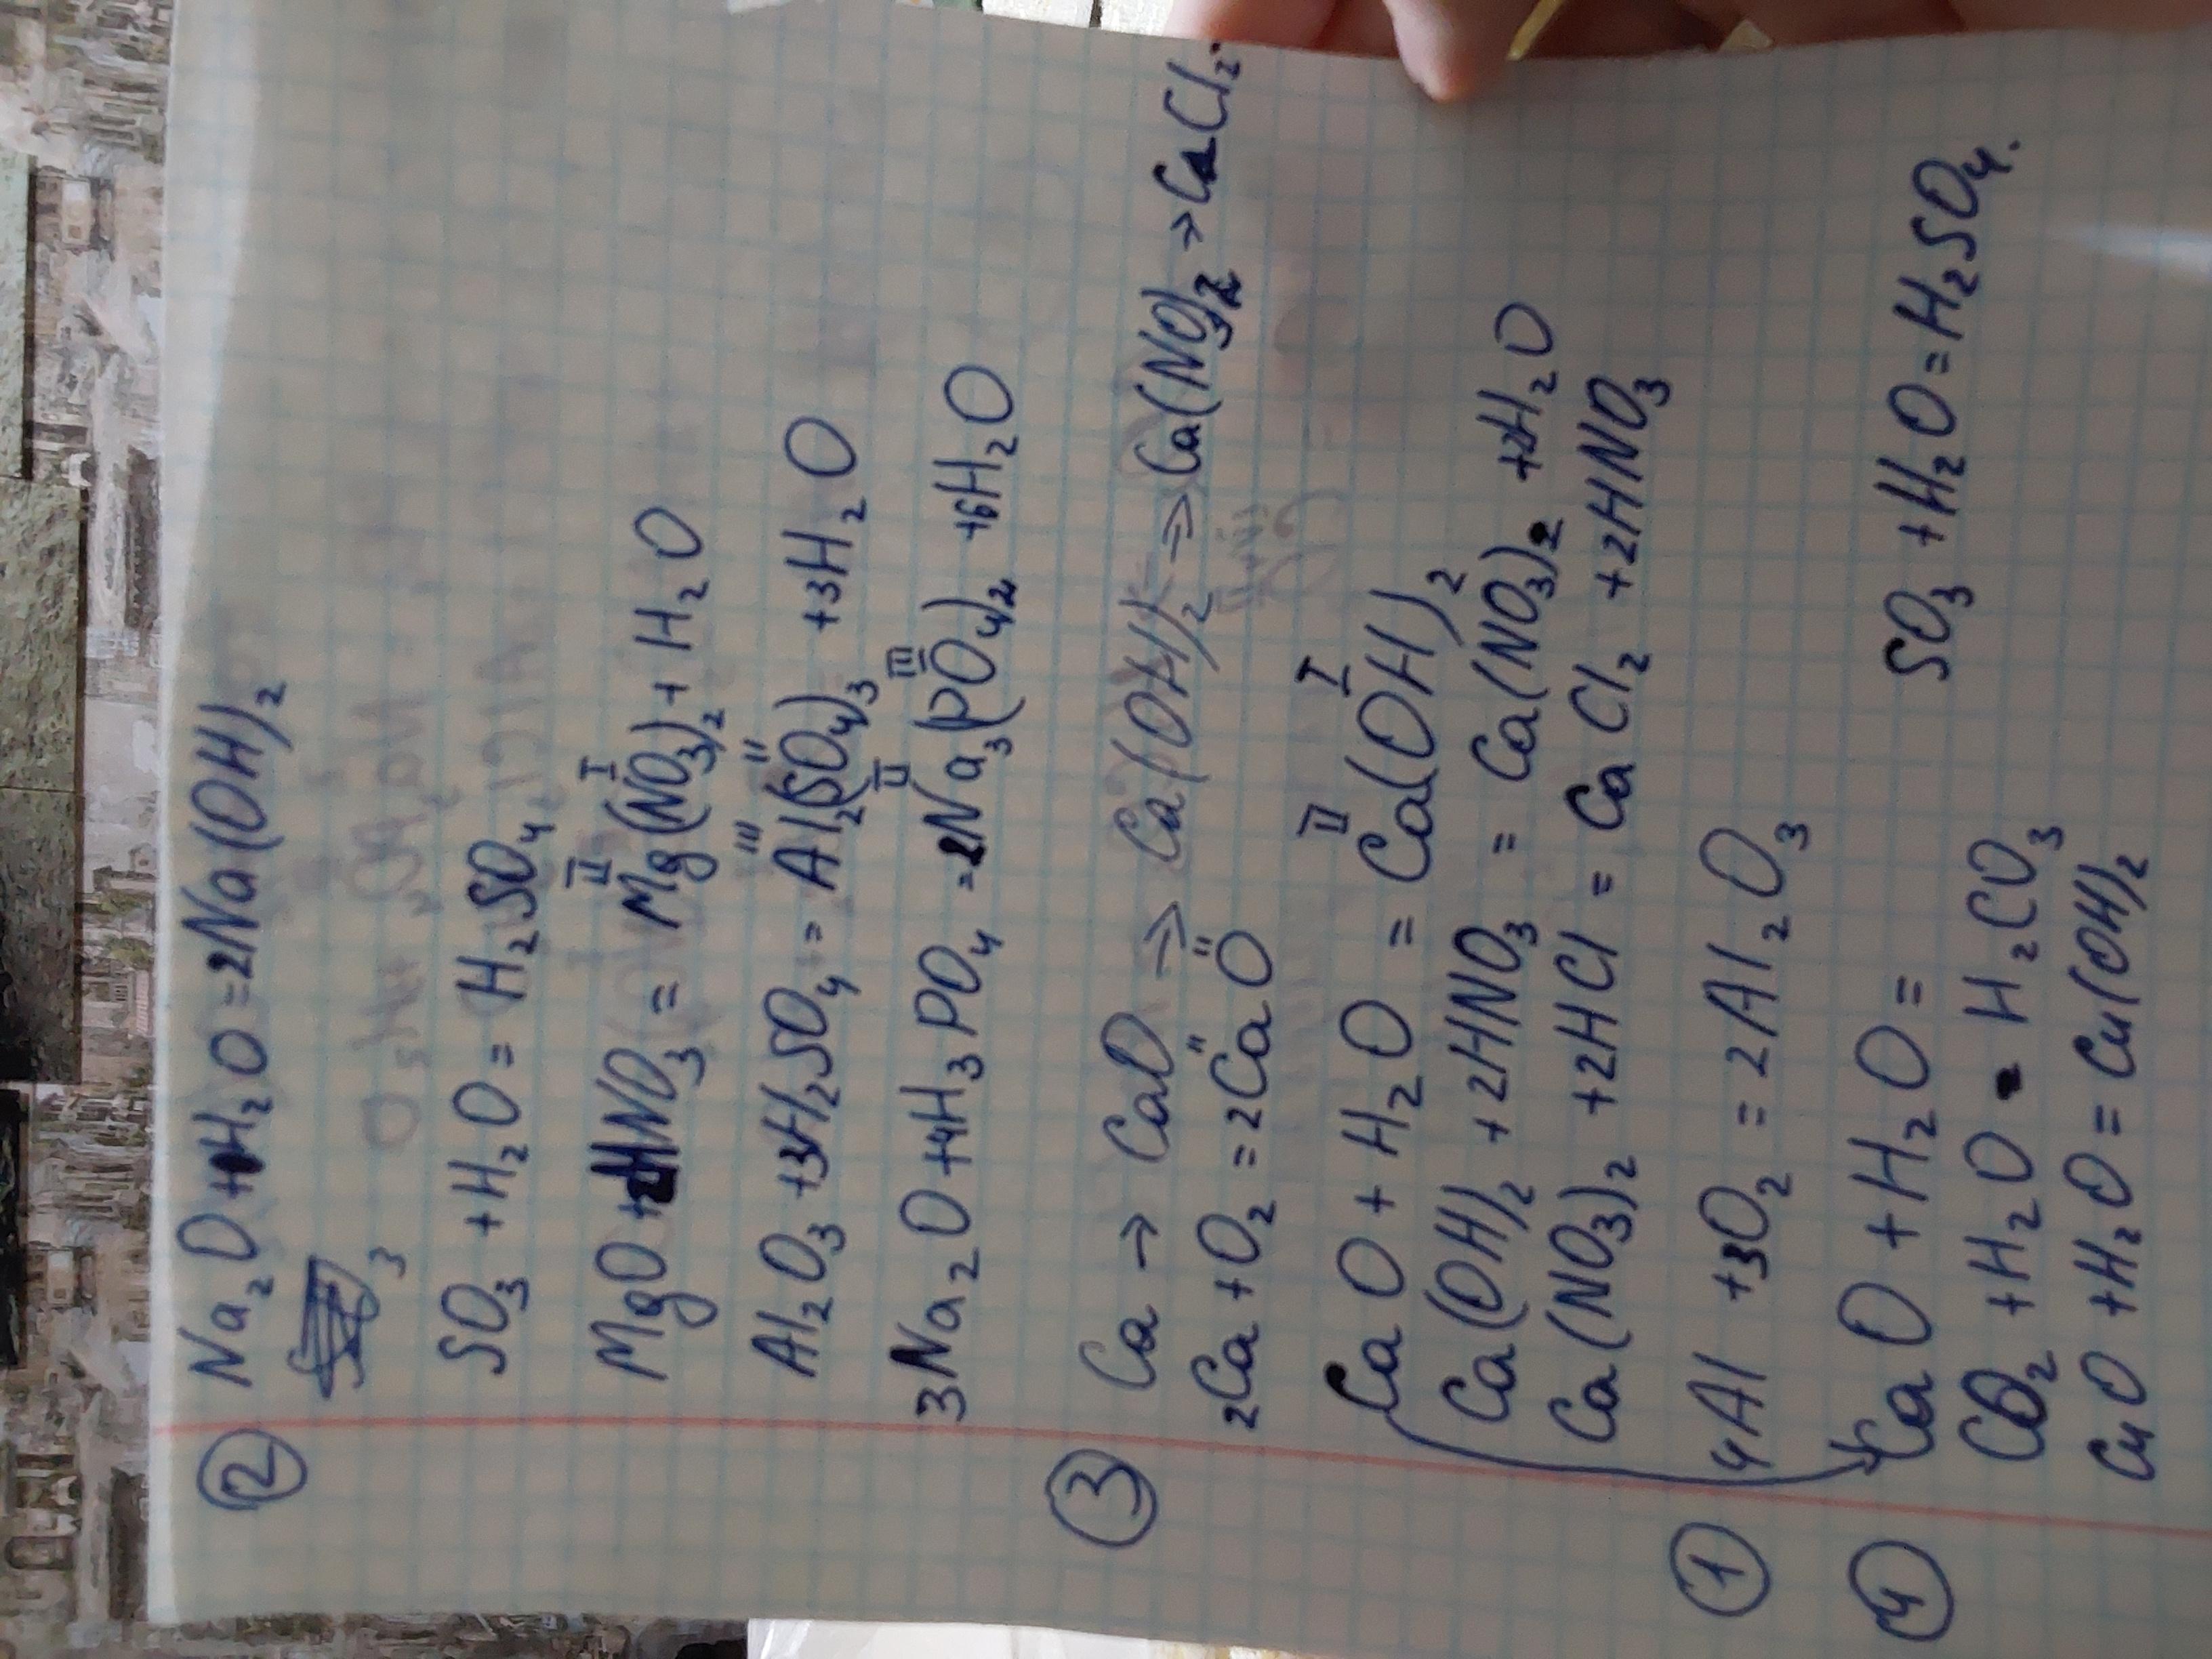 ② Na₂O + H₂O = 2Na(OH)₂
₃
SO₃ + H₂O = H₂SO₄
MgO + 2HNO₃ = Mg(NO₃)₂ + H₂O
II I
Al₂O₃ + 3H₂SO₄ = Al₂(SO₄)₃ + 3H₂O
III II
3Na₂O + 4H₃PO₄ = 2Na₃(PO₄)₂ + 6H₂O
II III
③ Ca → CaO → Ca(OH)₂ → Ca(NO₃)₂ → CaCl₂.
2Ca + O₂ = 2CaO
II II
CaO + H₂O = Ca(OH)₂
II I
Ca(OH)₂ + 2HNO₃ = Ca(NO₃)₂ + 2H₂O
Ca(NO₃)₂ + 2HCl = CaCl₂ + 2HNO₃
① 4Al + 3O₂ = 2Al₂O₃
④ CaO + H₂O = SO₃ + H₂O = H₂SO₄.
CO₂ + H₂O = H₂CO₃
CuO + H₂O = Cu(OH)₂